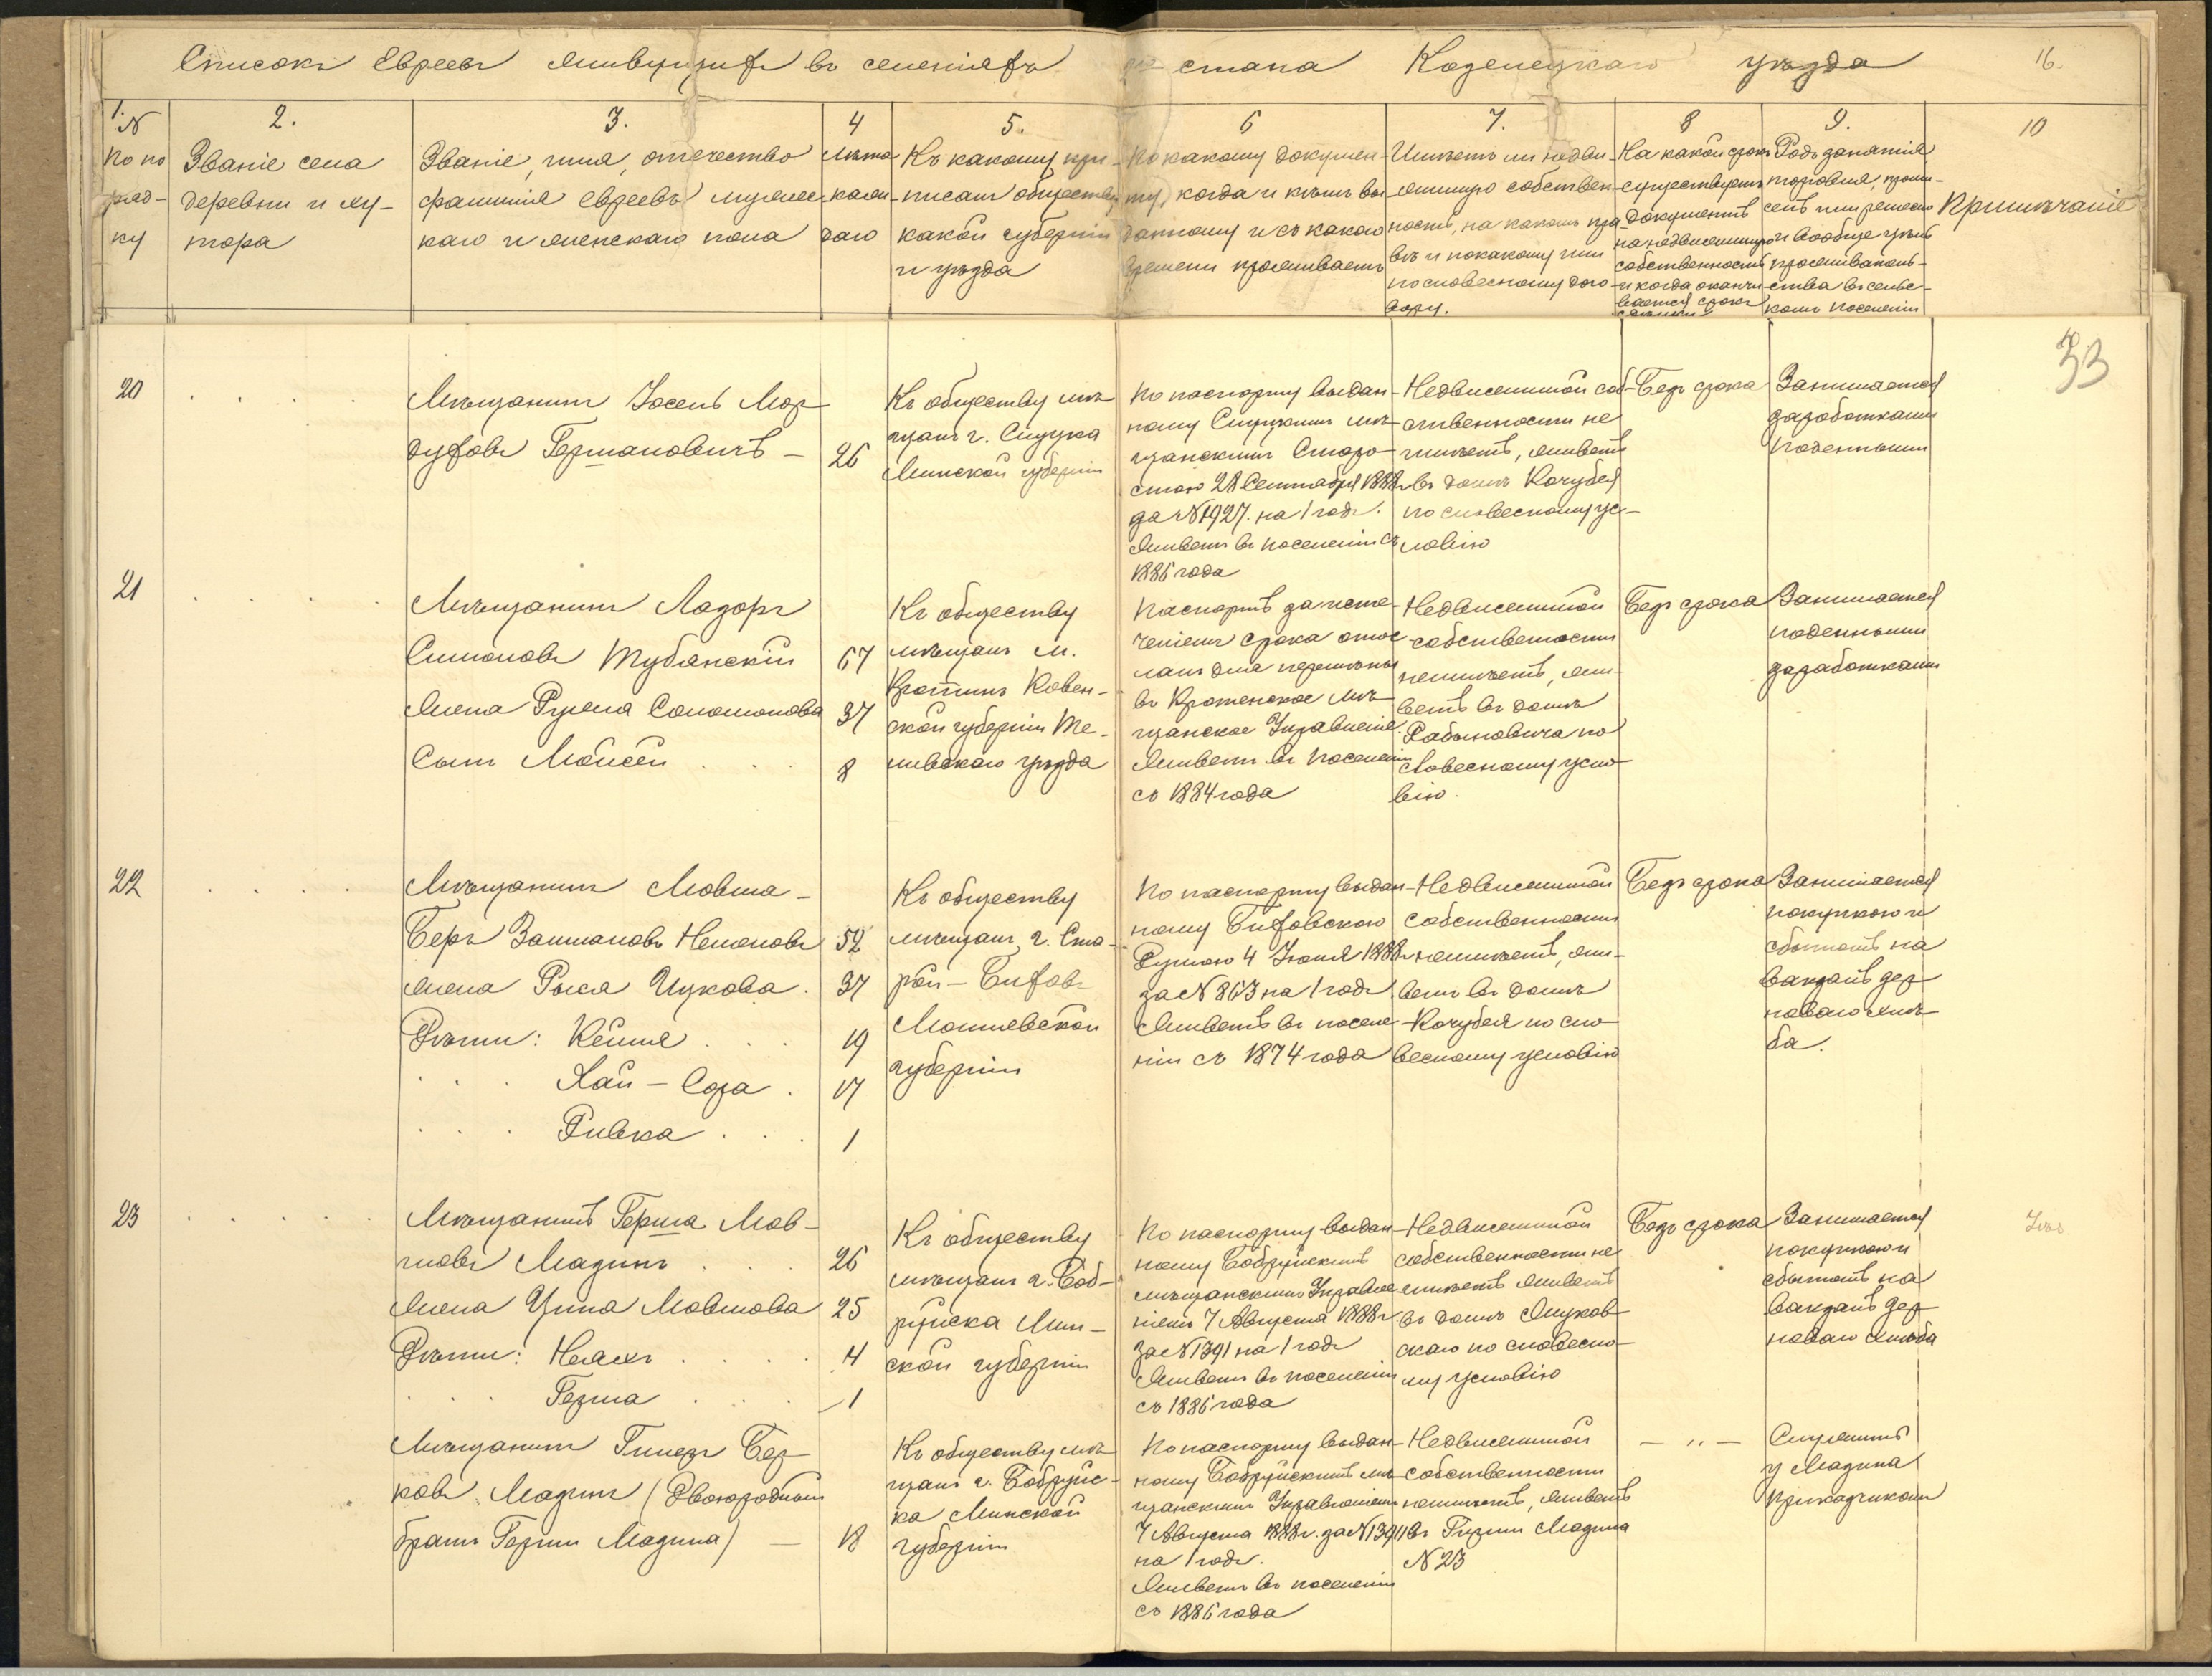 Списокъ Евреевъ живущихъ въ селеніяхъ 2го стана Козелецкаго уѣзда
16
1.
№
по по
ряд-
ку
2.
Званіе села
деревни и ху-
тора
3.
Званіе, имя, отчество
фамилія евреевъ мужес-
каго и женскаго пола
4
Лѣта
каж-
даго
5.
Къ какому при-
писанъ обществу
какой губерніи
и уѣзда
6
По какому докумен-
ту, когда и кѣмъ вы
данному и съ какого
времени проживаетъ
7.
Имѣетъ ли недви-
жимую собствен-
ность, на какомъ пра
вѣ и по какому или
по словесному дого-
вору.
8
На какой срокъ
существуетъ
документъ
на недвижимую
собственность
и когда оканчи-
вается срокъ
9.
Родъ занятія
торговля, промы-
селъ или ремесло
и вообще цѣль
проживатель-
ства въ сельс-
комъ поселеніи
10
Примѣчаніе
33
20
Мѣщанинъ Іосель Мор-
духовъ Германовичъ —
26
Къ обществу мѣ-
щанъ г. Слуцка
Минской губерніи
По паспорту выдан-
ному Слуцкимъ мѣ-
щанскимъ Старо-
стою 28 Сентября 1888г.
за №1927. на 1 годъ.
Живетъ въ поселеніи съ
1886 года
Недвижимой соб-
ственности не
имѣетъ, живетъ
въ домѣ Кочубея
по словесному ус-
ловію
Безъ срока
Занимается
заработками
поденными
21
Мѣщанинъ Лазоръ
Симоновъ Тубянскій
67
Жена Рухля Соломонова
37
Сынъ Мойсей
8
Къ обществу
мѣщанъ м.
Кротинъ Ковен-
ской губерніи Те-
льшевскаго уѣзда
Паспортъ за исте-
ченіемъ срока отос
ланъ для перемѣны
въ Кротенское мѣ-
щанское Управленіе.
Живетъ въ поселеніи
съ 1884 года
Недвижимой
собственности
неимѣетъ, жи-
ветъ въ домѣ
Рабиновича по
словесному усло-
вію.
Безъ срока
Занимается
поденными
заработками
22
Мѣщанинъ Мовша-
Беръ Залмановъ Немоновъ
52
жена Рыся Ицкова.
37
Дѣти: Кейля
19
Хая-Сора
17
Ривка
1
Къ обществу
мѣщанъ, г. Ста-
рой-Быховъ
Могилевской
губерніи
По паспорту выдан-
ному Быховскою
Думою 4 Іюня 1888г
за №863 на 1 годъ
Живетъ въ поселе-
ніи съ 1874 года
Недвижимой
собственности
неимѣетъ, жи-
ветъ въ домѣ
Кочубея по сло-
весному условію
Безъ срока
Занимается
покупкою и
сбытомъ на
вокзалъ дер-
новаго хлѣ-
ба.
23
Мѣщанинъ Герша Мов-
шовъ Мазинъ
26
Жена Ципа Мовшова
25
Дѣти:
4
Герша
1
Къ обществу
мѣщанъ г. Боб-
руйска Мин-
ской губерніи
По паспорту выдан-
ному Бобруйскимъ
мѣщанскимъ Управле
ніемъ 7 Августа 1888г
за №1391 на 1 годъ
Живетъ въ поселеніи
съ 1886 года
Недвижимой
собственности не
имѣетъ живетъ
въ домѣ Жуков-
скаго по словесно-
му условію
Безъ срока
Занимается
покупкою и
сбытомъ на
вокзалъ дер-
новаго хлѣба
Мѣщанинъ Гилеръ Бер-
ковъ Мазинъ (Двоюродный
братъ Герши Мазина) —
18
Къ обществу мѣ-
щанъ г. Бобруйс-
ка Минской
губерніи
По паспорту выдан-
ному Бобруйскимъ мѣ-
щанскимъ Управленіемъ
7 Августа 1888г. за №1391
на 1 годъ.
Живетъ въ поселеніи
съ 1886 года
Недвижимой
собственности
неимѣетъ, живетъ
въ Гирши Мазина
№23
— " —
Служитъ
у Мазина
прикащикомъ